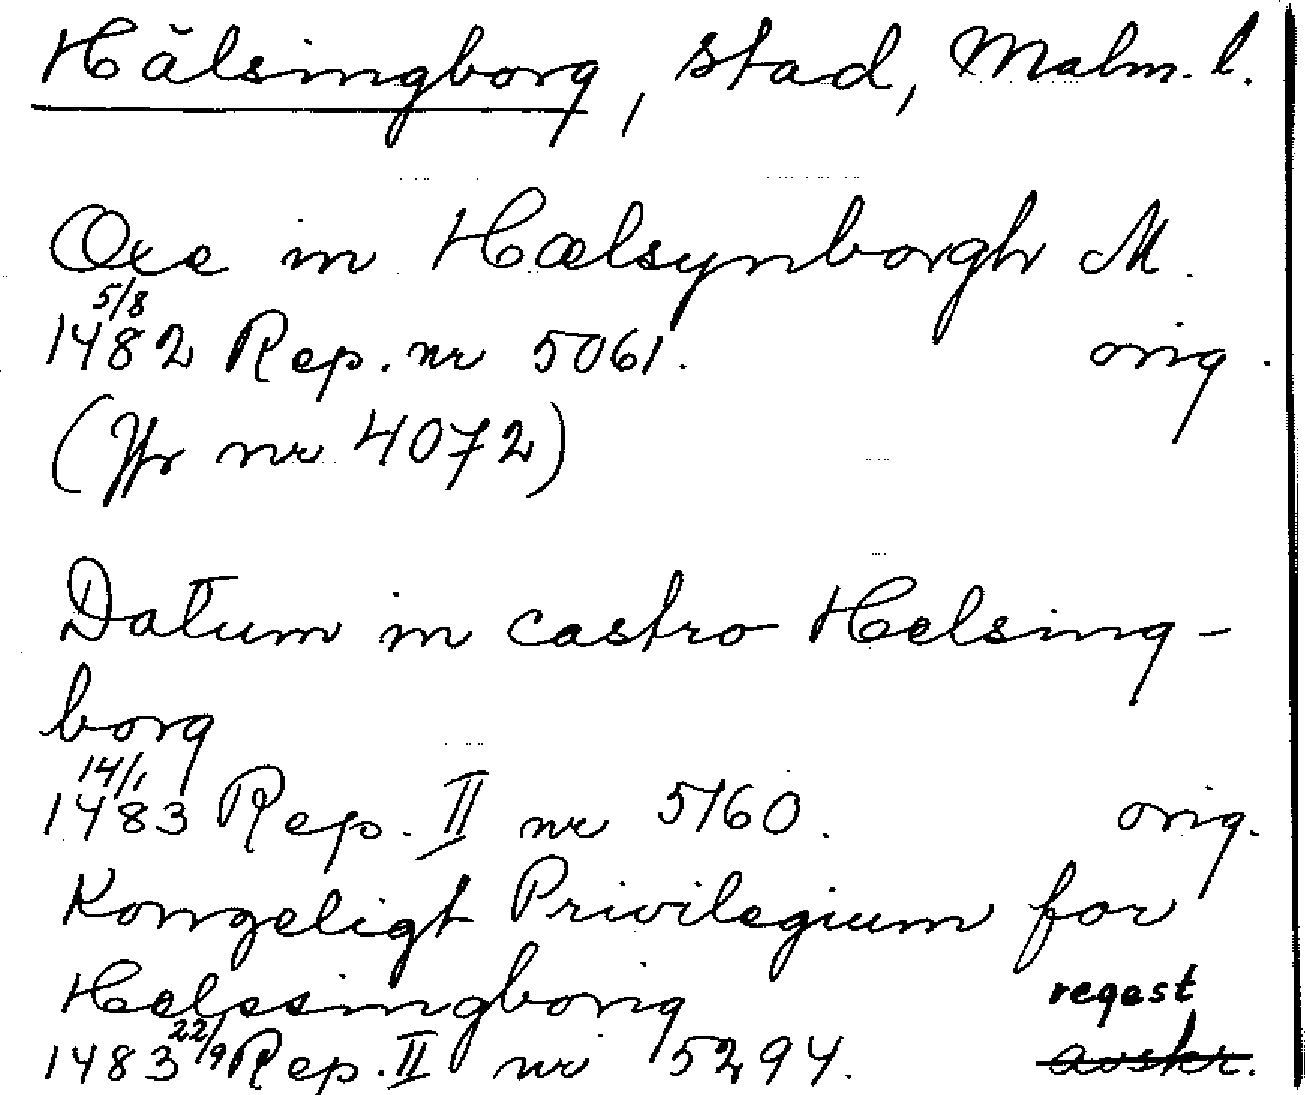 Hälsingborg, stad, Malm. l.
Oxe in Hælsynborgh M.
5/8
1482 Rep. nr 5061. orig.
(Jfr nr 4072)
Datum in castro Helsing-
borg
14/1
1483 Rep. II nr 5160. orig.
Kongeligt Privilegium for
Helsingborg regest
1483 22/9 Rep. II nr 5294. avskr.